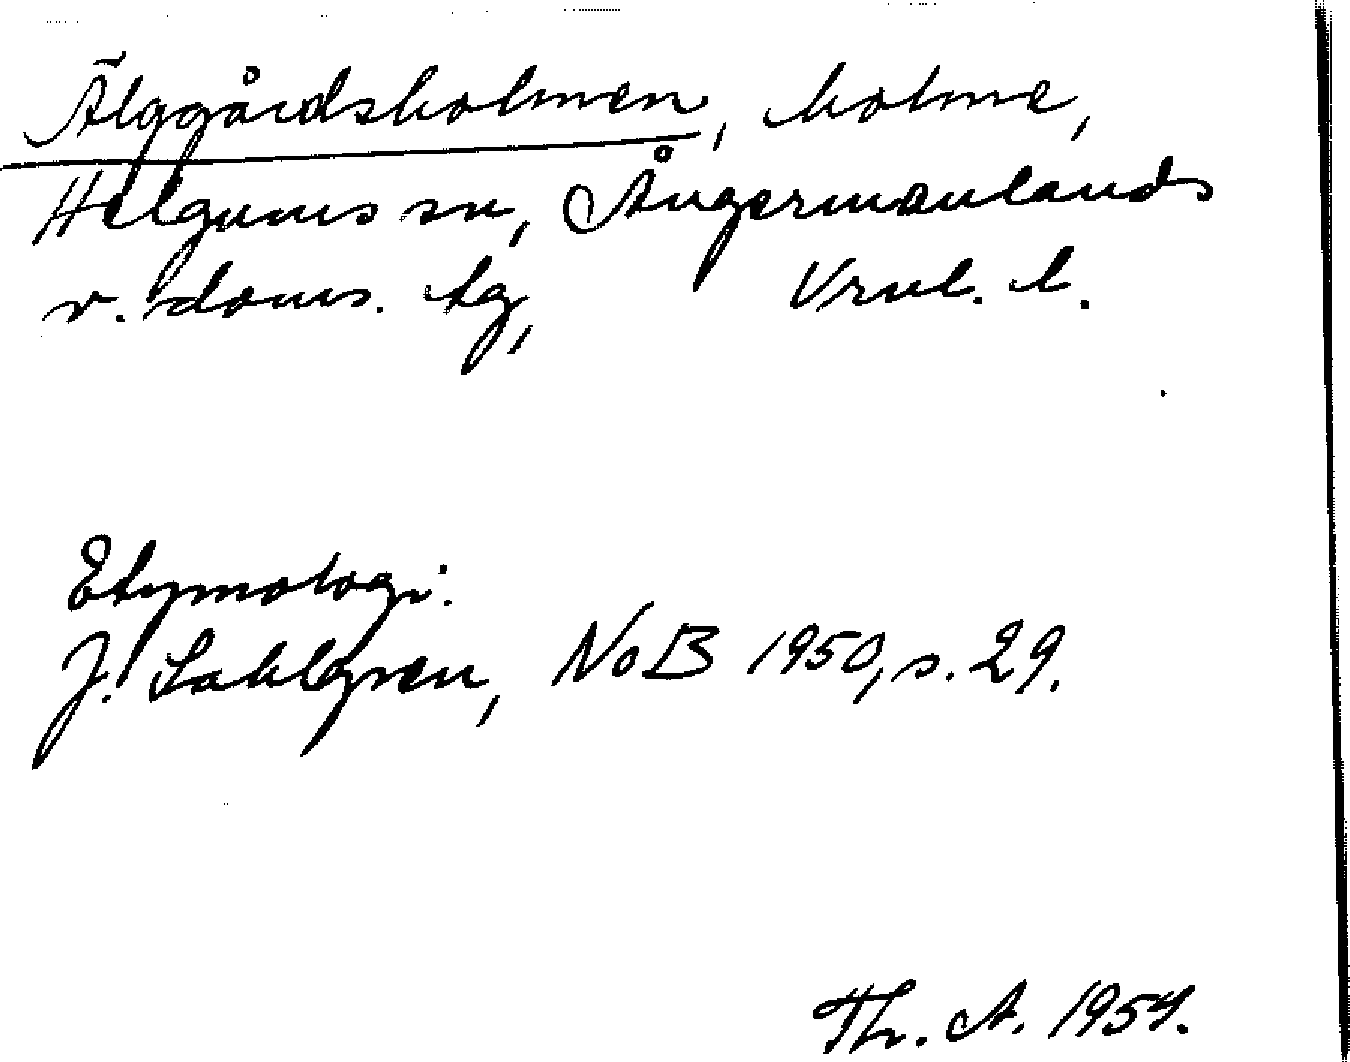 Älggårdsholmen, holme,
Helgums sn, Ångermanlands
v. doms. tg, Vrnl. l.
Etymologi:
J. Sahlgren, NoB 1950, s. 29.
Th. A. 1954.